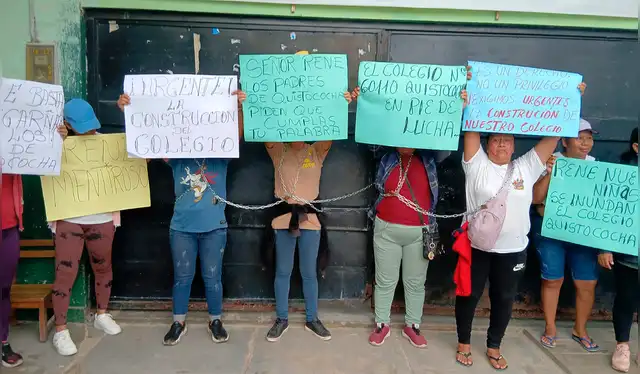 E BASTA
GAÑA
S DE
COCHA
EL
MENTIROSO
URGENTE
LA
CONSTRUCCION
DEL
COLEGIO
SEÑOR RENE
LOS PADRES
DE QUISTOCOCHA
PIDEN QUE
CUMPLAS
TU PALABRA
EL COLEGIO N°
60140 QUISTOCOCHA
EN PIE DE
LUCHA
ES UN DERECHO
NO UN PRIVILEGIO
EXIGIMOS URGENTES
LA CONSTRUCION DE
NUESTRO COLEGIO
RENE NUE
NIÑO
SE INUNDAN
EL COLEGIO
QUISTOCOCHA